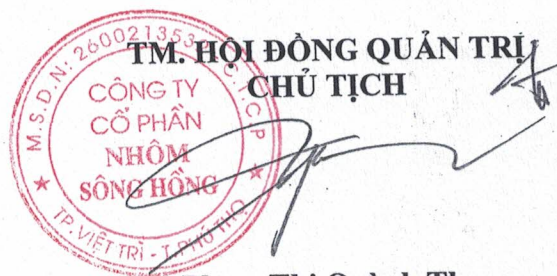 TM. HỘI ĐỒNG QUẢN TRỊ
CHỦ TỊCH
M.S.D.N: 260021353
C.T.C.P
CÔNG TY
CỔ PHẦN
NHÔM
SÔNG HỒNG
TP. VIỆT TRÌ - T. PHÚ THỌ
Thị Quỳnh